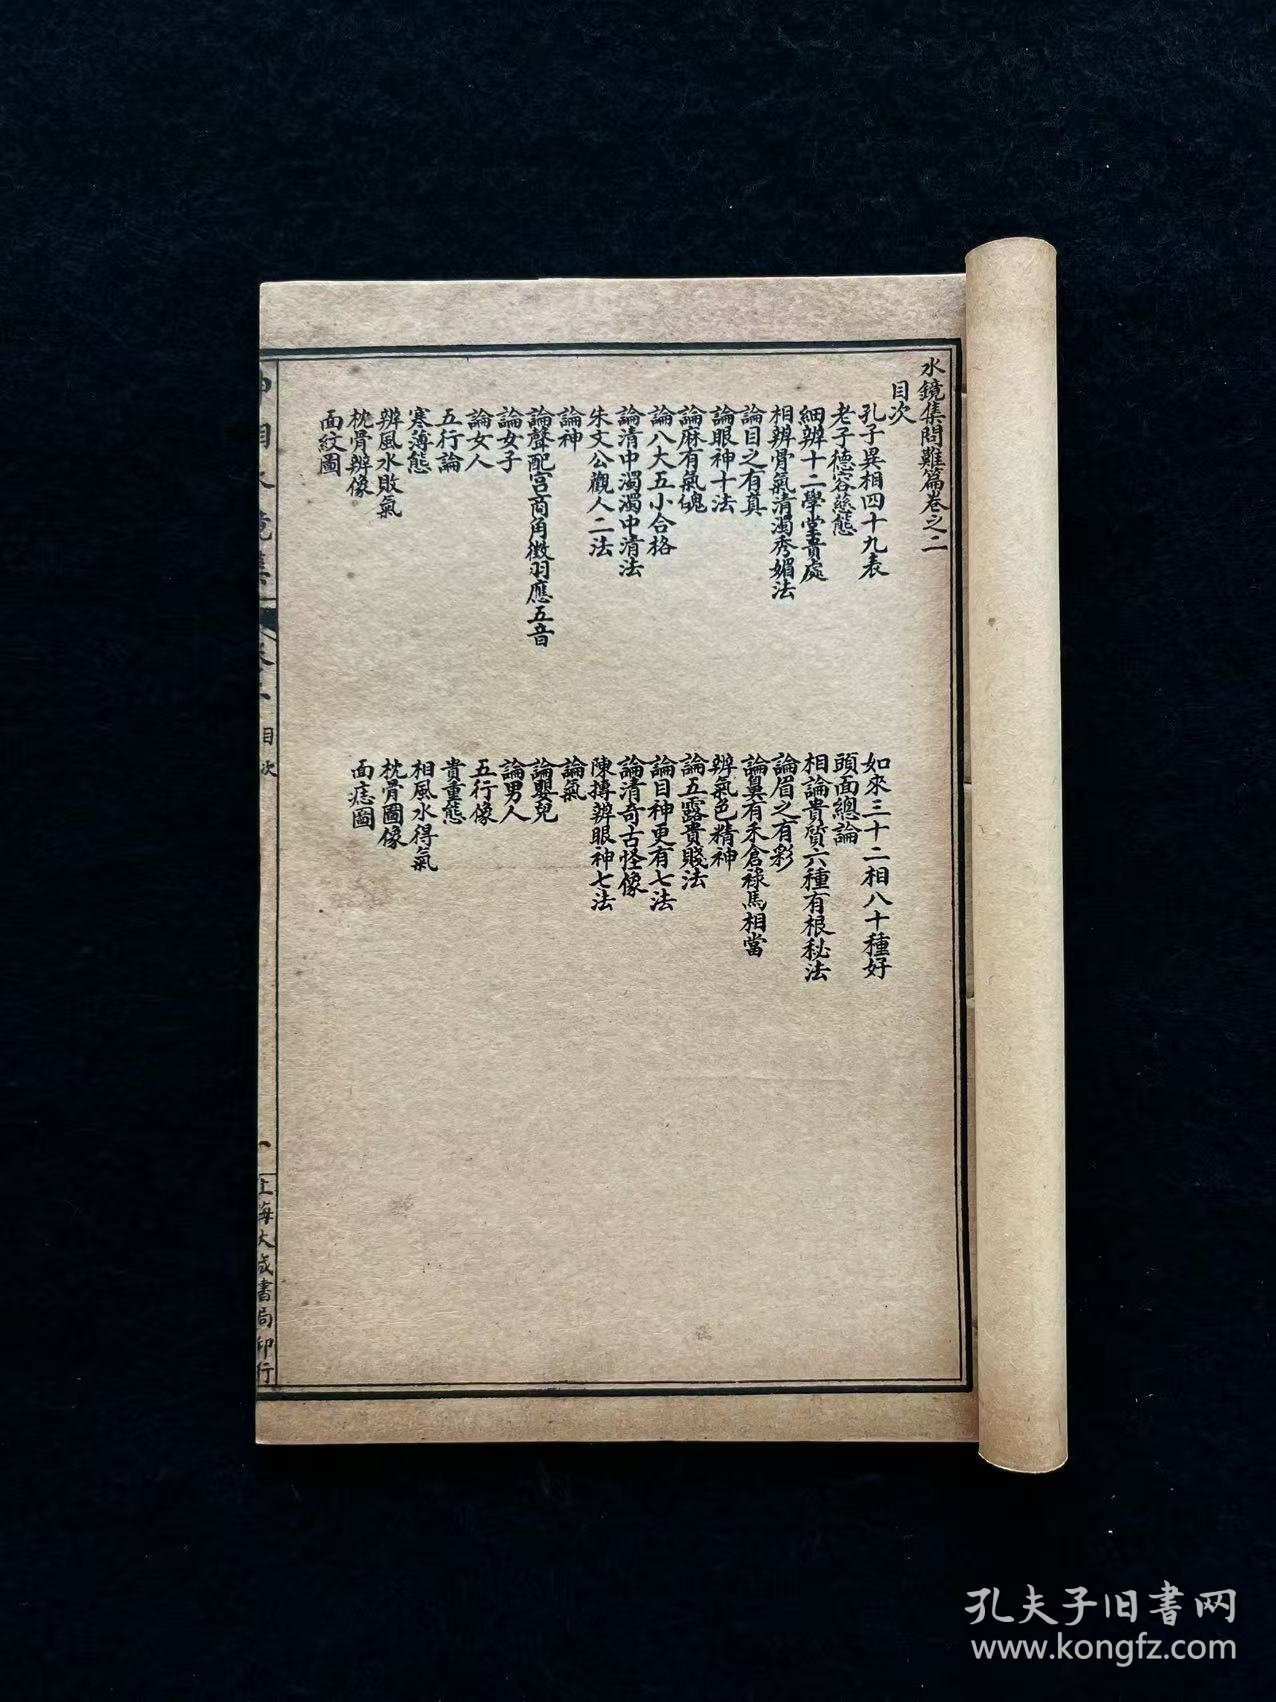 水鏡集問難篇卷之二
目次
孔子異相四十九表
如來三十二相八十種好
老子德容慈態
頭面總論
細辨十二學堂貴處
相論貴質六種有根秘法
相辨骨氣清濁秀媚法
論眉之有彩
論目之有真
論鼻有禾倉祿馬相當
論眼神十法
辨氣色精神
論麻有氣魄
論五露貴賤法
論八大五小合格
論目神更有七法
論清中濁濁中清法
論清奇古怪像
朱文公觀人二法
陳摶辨眼神七法
論神
論氣
論聲配宮商角徵羽應五音
論嬰兒
論女子
論男人
論女人
五行像
五行論
貴重態
寒薄態
相風水得氣
辨風水敗氣
枕骨圖像
枕骨辨像
面痣圖
面紋圖
相水鏡集
目次
一
上海大成書局印行
孔夫子旧書网
www.kongfz.com